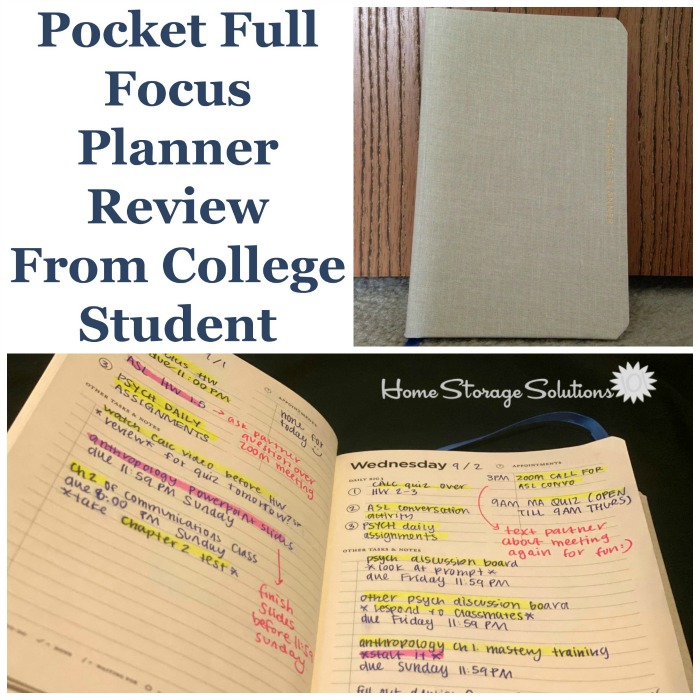 Pocket Full
Focus
Planner
Review
From College
Student
Home Storage Solutions 101
HW
due 11:00 PM
ASL HW 1.5 → ask partner
question over
zoom meeting
③ PSYCH DAILY
ASSIGNMENTS
APPOINTMENTS
none for
today
OTHER TASKS & NOTES
*watch calc video before HW
review* for quiz tomorrow?
anthropology powerpoint slides
due 11:59 PM Sunday
ch 2 of communications class
due 8:00 PM Sunday
*take chapter 2 test*
finish
slides
before 11:59
Sunday
Wednesday 9/2
DAILY BIG 3
① CALC quiz over
HW 2-3
② ASL conversation
activity
③ PSYCH daily
assignments
APPOINTMENTS
3PM ZOOM CALL FOR
ASL CONVO
9AM MA QUIZ (OPEN
TILL 9AM THURS)
text partner
about meeting
again for fun:)
OTHER TASKS & NOTES
psych discussion board
*look at prompt*
due Friday 11:59 PM
other psych discussion board
*respond to classmates*
due Friday 11:59 PM
anthropology ch 1 mastery training
*start it*
due Sunday 11:59 PM
fill out